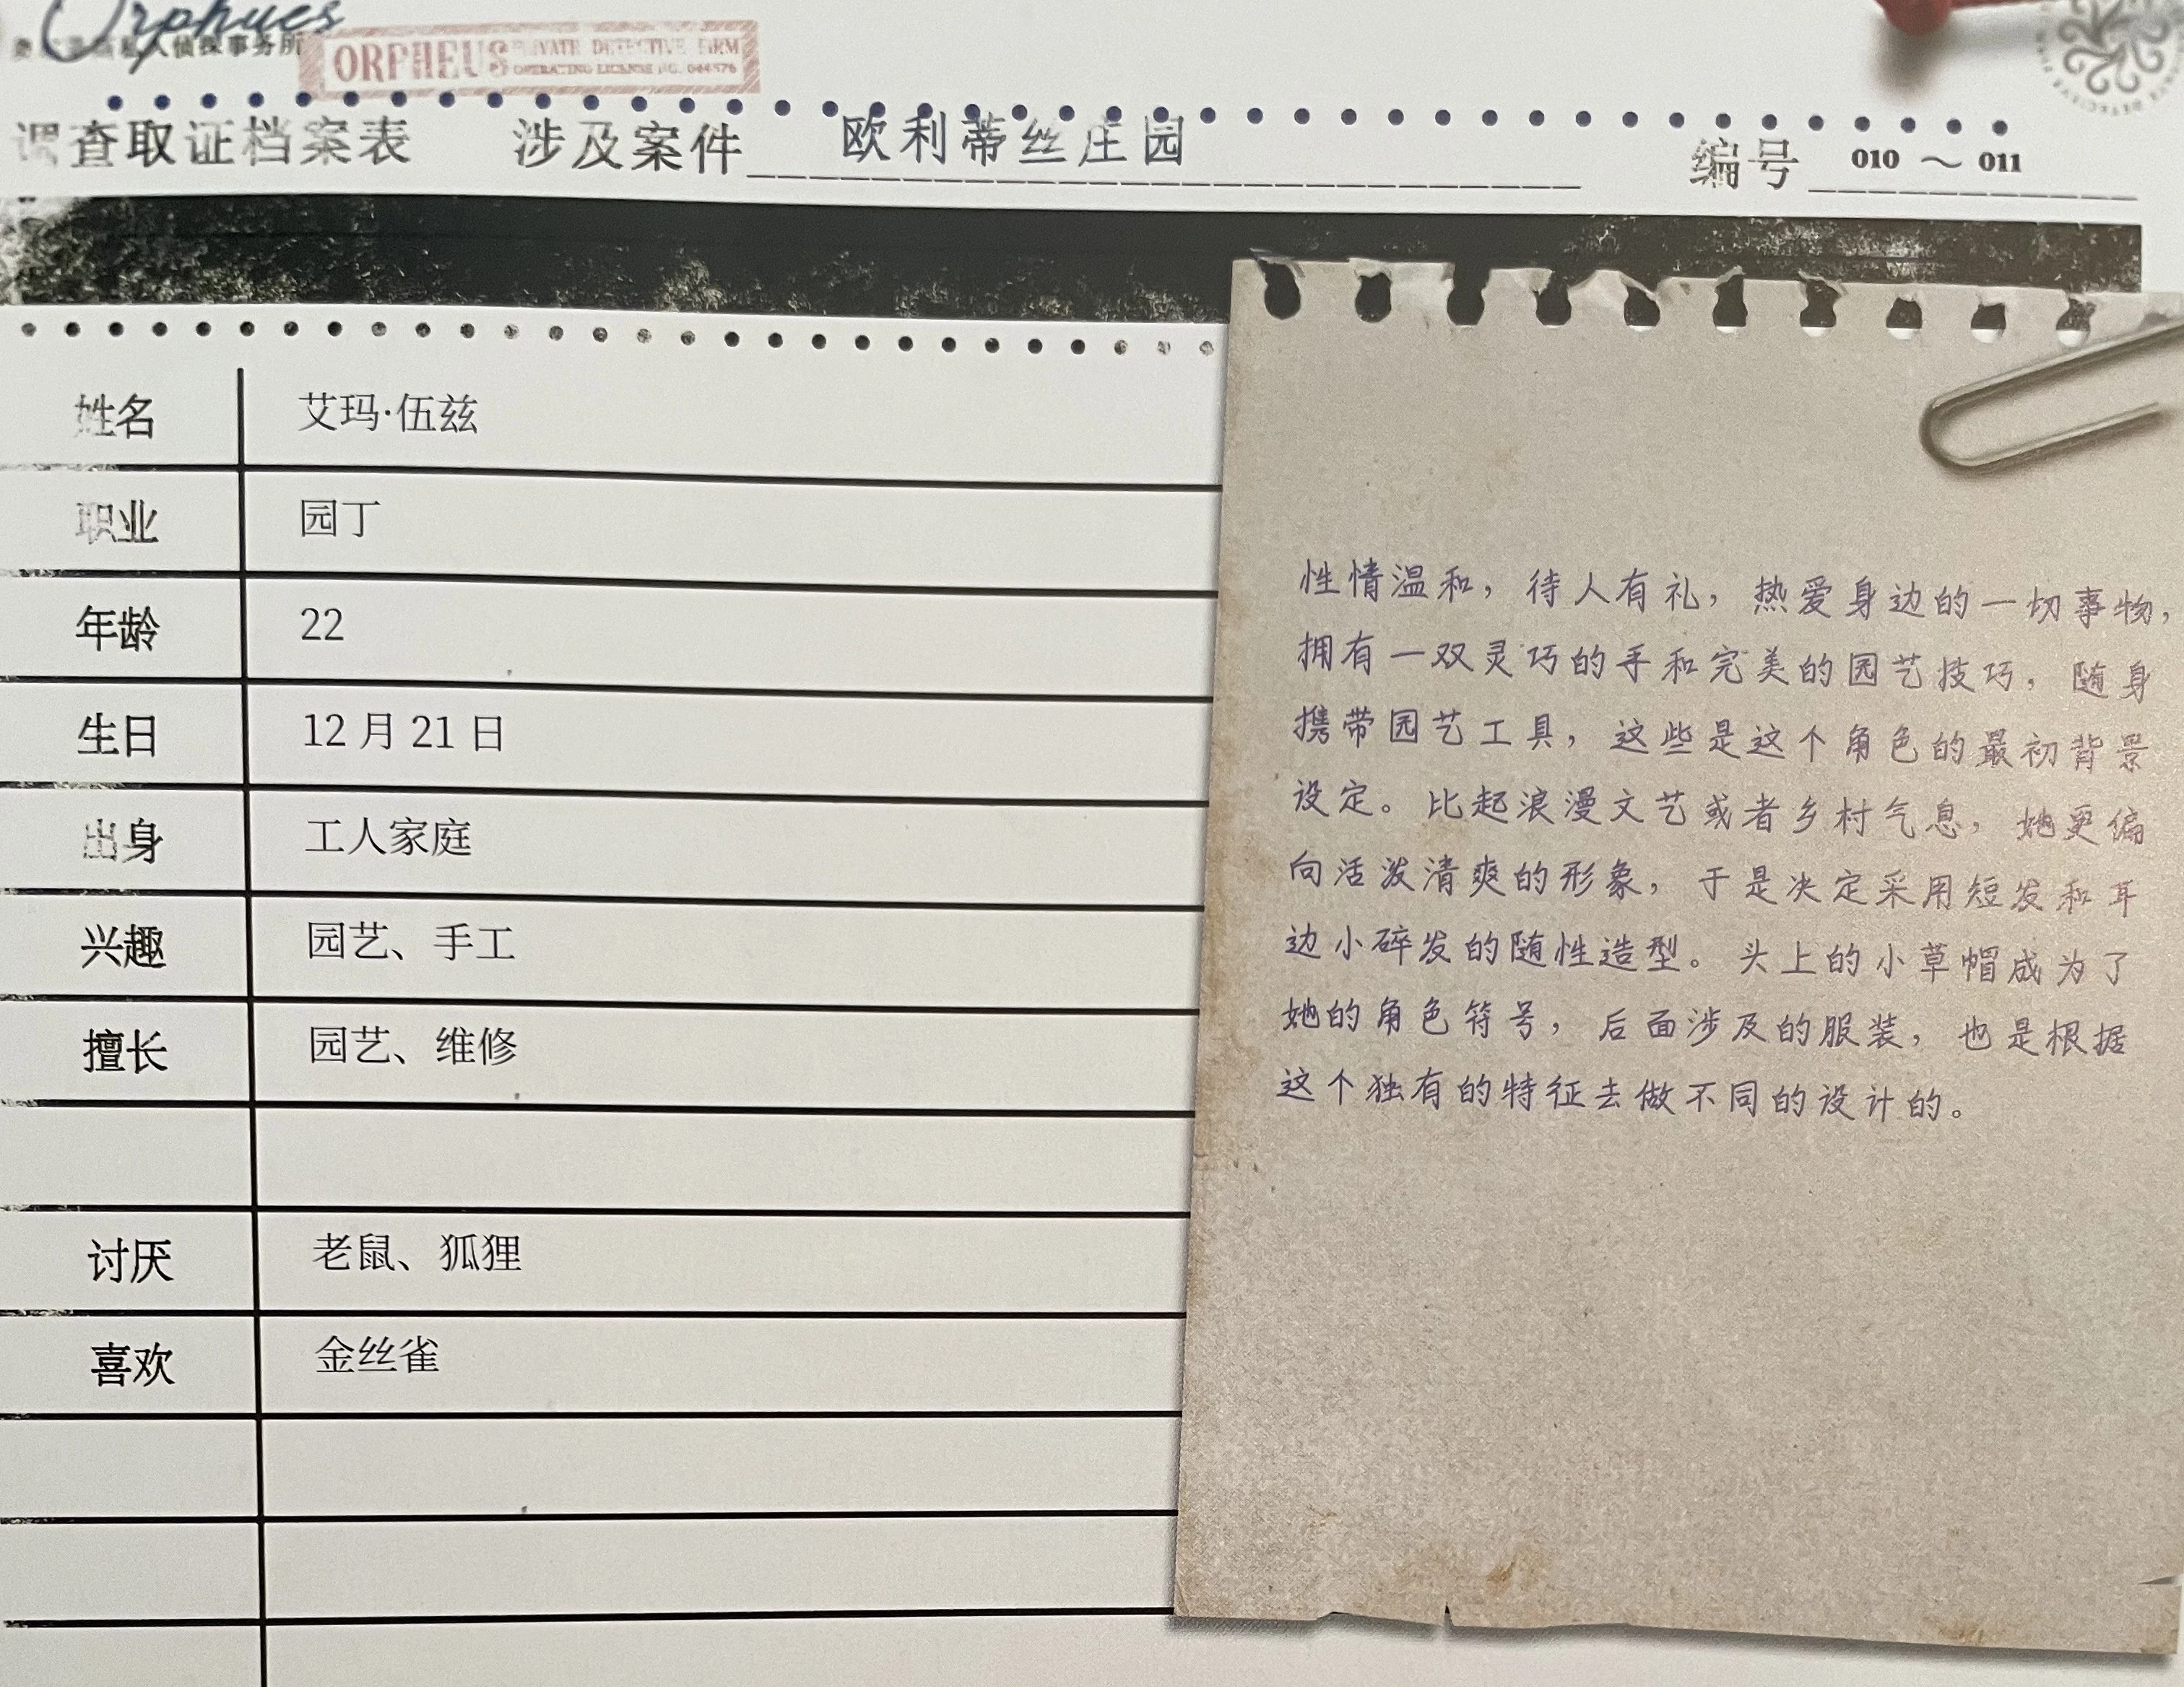 Orpheus
私人侦探事务所
ORPHEUS PRIVATE DETECTIVE FIRM
OPERATING LICENSE NO.
调查取证档案表 涉及案件 欧利蒂丝庄园 编号 010 ～ 011
姓名 艾玛·伍兹
职业 园丁
年龄 22
生日 12 月 21 日
出身 工人家庭
兴趣 园艺、手工
擅长 园艺、维修
讨厌 老鼠、狐狸
喜欢 金丝雀
性情温和，待人有礼，热爱身边的一切事物，
拥有一双灵巧的手和完美的园艺技巧，随身
携带园艺工具，这些是这个角色的最初背景
设定。比起浪漫文艺或者乡村气息，她更偏
向活泼清爽的形象，于是决定采用短发和耳
边小碎发的随性造型。头上的小草帽成为了
她的角色符号，后面涉及的服装，也是根据
这个独有的特征去做不同的设计的。